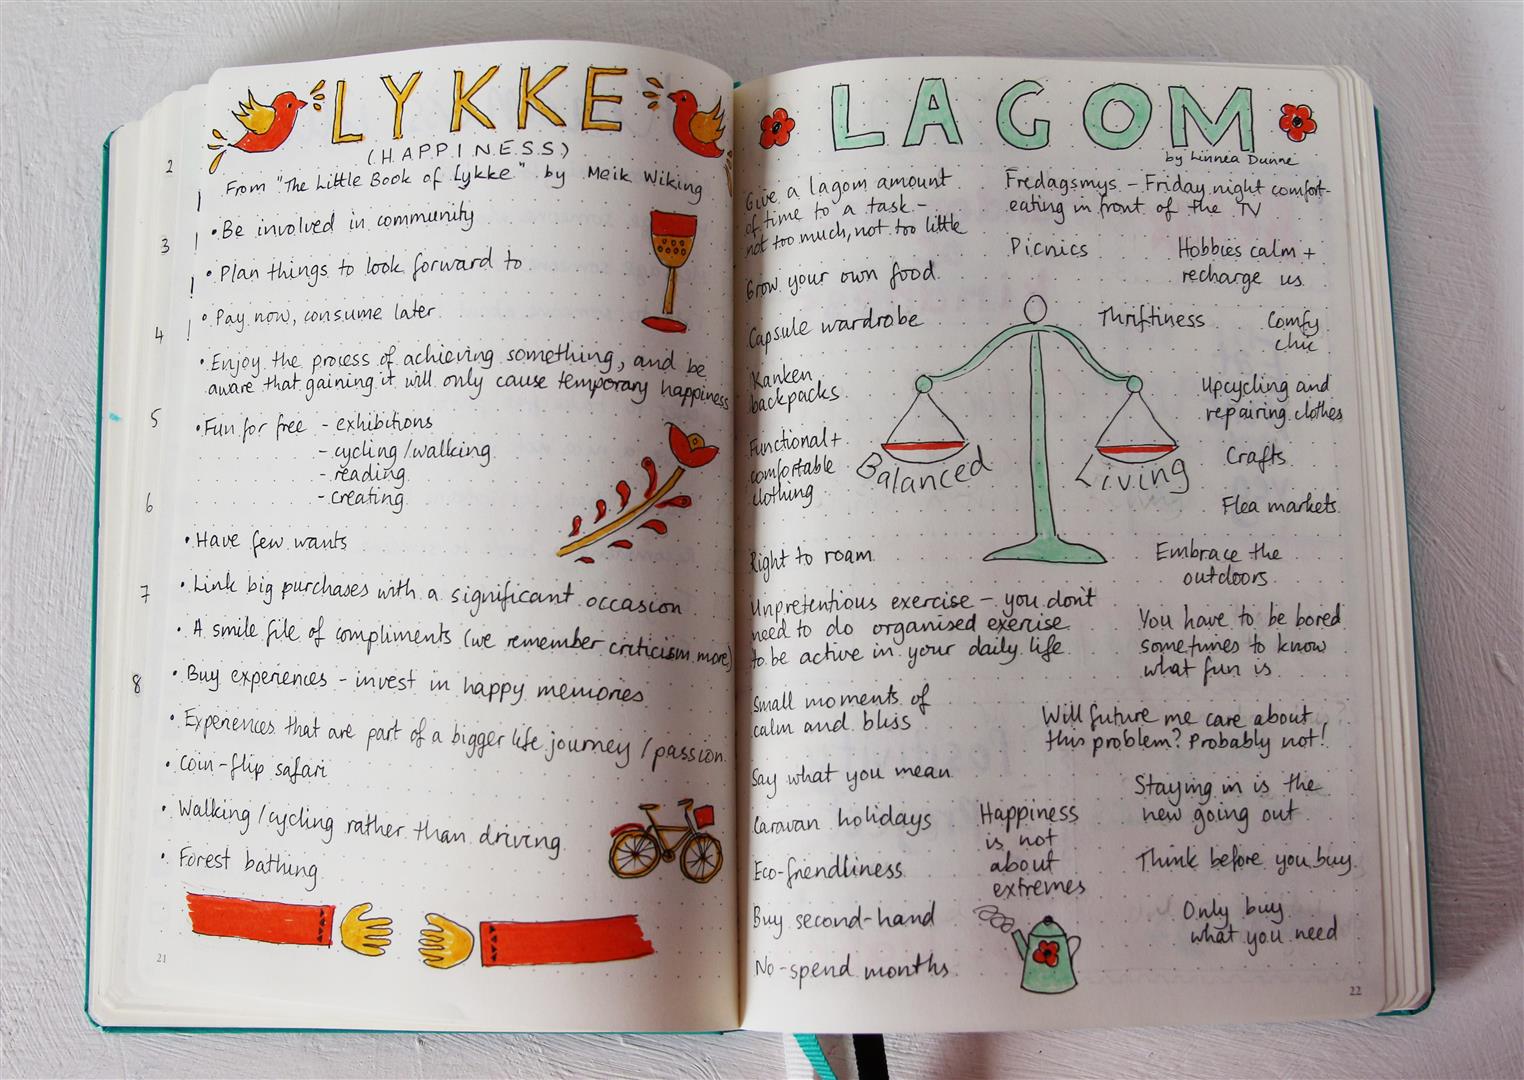 LYKKE
(HAPPINESS)
From "The Little Book of Lykke" by Meik Wiking
• Be involved in community
• Plan things to look forward to
• Pay now, consume later
• Enjoy the process of achieving something, and be
aware that gaining it will only cause temporary happiness
• Fun for free - exhibitions
- cycling/walking
- reading
- creating
• Have few wants
• Link big purchases with a significant occasion
• A smile file of compliments (we remember criticism more)
• Buy experiences - invest in happy memories
• Experiences that are part of a bigger life journey/passion
• Coin-flip safari
• Walking/cycling rather than driving
• Forest bathing
2
3
4
5
6
7
8
21
LAGOM
by Linnea Dunne
Give a lagom amount
of time to a task -
not too much, not too little
Grow your own food
Capsule wardrobe
Kanken
backpacks
Functional +
comfortable
clothing
Right to roam
Unpretentious exercise - you don't
need to do organised exercise
to be active in your daily life
Small moments of
calm and bliss
Say what you mean
Caravan holidays
Eco-friendliness
Buy second-hand
No-spend months
Fredagsmys - Friday night comfort-
eating in front of the TV
Picnics
Hobbies calm +
recharge us
Thriftiness
Comfy
chic
Upcycling and
repairing clothes
Crafts
Flea markets
Balanced Living
Embrace the
outdoors
You have to be bored
sometimes to know
what fun is
Will future me care about
this problem? Probably not!
Staying in is the
new going out
Happiness
is not
about
extremes
Think before you buy
Only buy
what you need
22